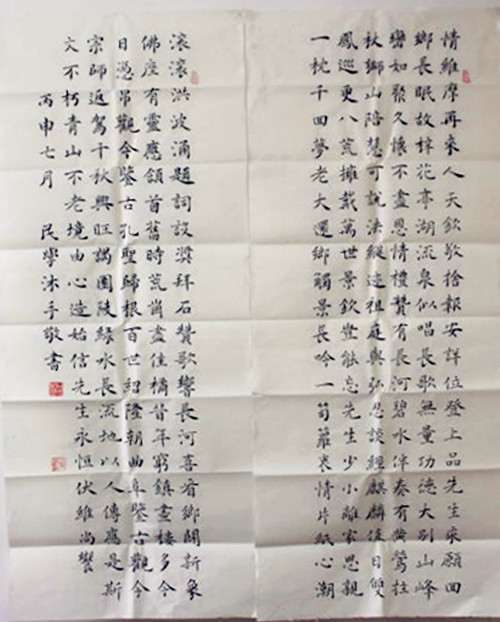 情維摩再來人天欽敬捨報安詳位登上品先生乘願回
鄉長眠故梓花亭湖流泉似唱長歌無量功德大別山峰
巒如聚久懷不盡恩情禮贊有長河碧水伴奏有黃鶯拄
秋鄉山陪慧可說法縱迹祖庭與弘忍談經麒麟後日雙
鳳巡更八荒擁戴萬世景欽豈能忘先生少小離家思親
一枕千回夢老大還鄉觸景長吟一茍蓑衷情片紙心潮
滾滾洪波涌題詞設奠拜石贊歌響長河喜看鄉關新象
佛座有靈應頷首舊時荒崗盡佳橘昔年窮鎮畫樓多今
日憑吊觀今鑒古孔聖歸根百世紹隆朝曲阜鑒古觀今
宗師返駕千秋興旺謁園陵綠水長流地以人傳應是斯
文不朽青山不老境由心造始信先生永恒伏維尚饗
丙申七月 民學沐手敬書